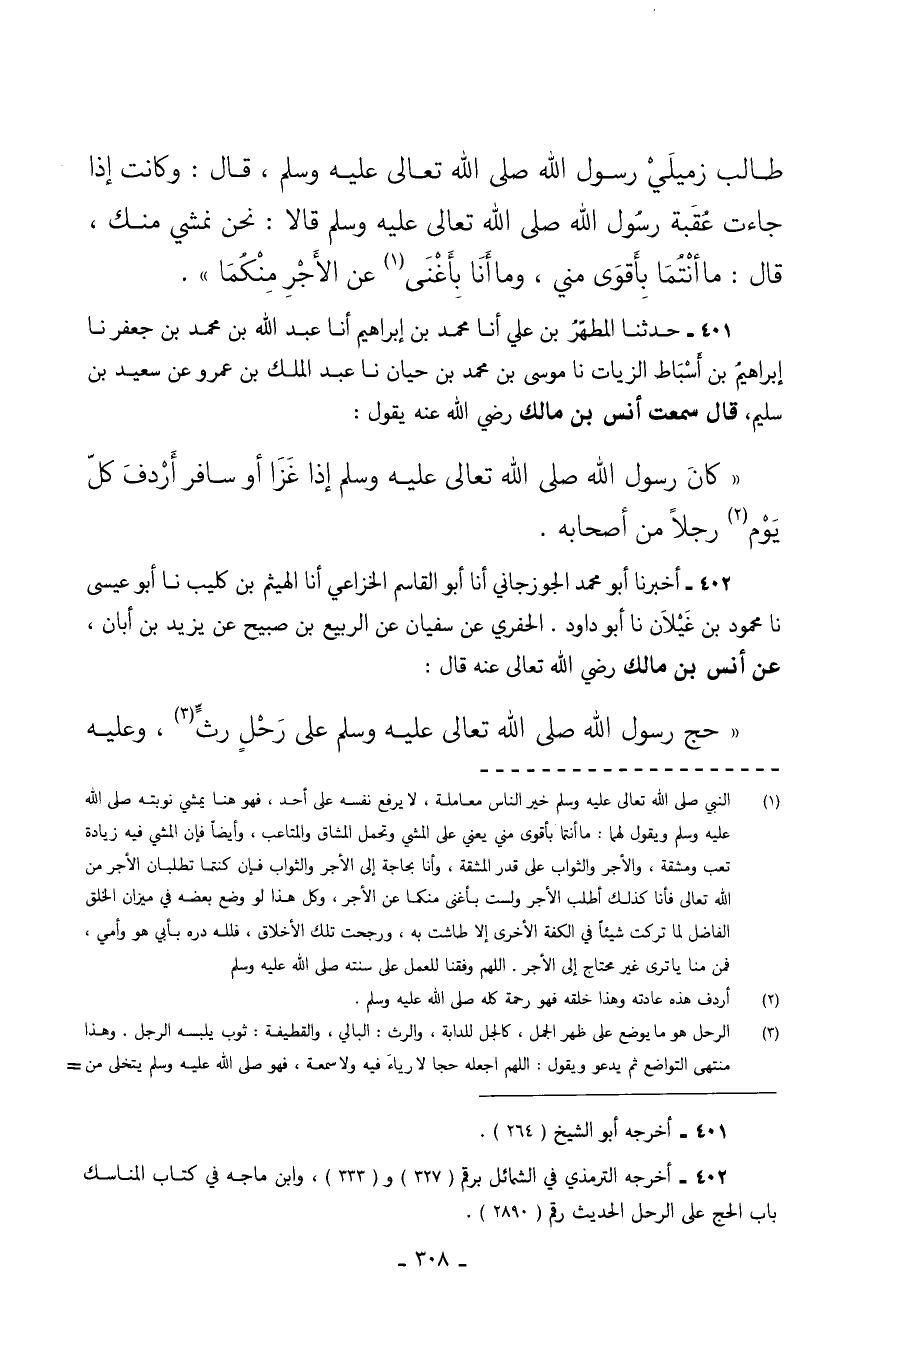 طـالب زميلَيْ رسـول الله صلى الله تعـالى عليـه وسلم ، قـال : وكانت إذا
جاءت عُقَبة رسُول الله صلى الله تعالى عليه وسلم قالا : نحن نمشي منـك ،
قال : ماأَنْتُمَا بِأَقوَى مني ، وماأَنَا بِأَغْنَى(١) عن الأَجْرِ مِنْكُمَا » .
٤٠١ ـ حـدثنـا المطهّرُ بن علي أنـا محمد بن إبراهيم أنـا عبـد الله بن محمـد بن جعفر نـا
إبراهيمُ بن أَسْبَاط الزيات نا موسى بن محمد بن حيان نـا عبـد الملـك بن عمرو عن سعيـد بن
سليم، قال سمعت أنس بن مالك رضي الله عنه يقول :
« كانَ رسول الله صلى الله تعالى عليـه وسلم إذا غَزَا أو سـافر أَرْدفَ كلّ
يَوْم(٢) رجلاً من أصحابه .
٤٠٢ ـ أخبرنا أبو محمد الجوزجاني أنا أبو القاسم الخزاعي أنا الهيثم بن كليب نـا أبو عيسى
نا محمود بن غَيْلاَن نا أبو داود . الحفري عن سفيان عن الربيع بن صبيح عن يزيـد بن أبان ،
عن أنس بن مالك رضي الله تعالى عنه قال :
« حج رسول الله صلى الله تعالى عليـه وسلم على رَحْلٍ رثٍّ(٣) ، وعليـه
(١) النبي صلى الله تعالى عليه وسلم خير الناس معـاملـة ، لا يرفع نفسـه على أحـد ، فهو هنـا يمشي نوبتـه صلى الله
عليه وسلم ويقول لهما : ماأنتما بأقوى مني يعني على المشي وتحمل المشاق والمتاعب ، وأيضاً فإن المشي فيه زيادة
تعب ومشقة ، والأجر والثواب على قدر المشقة ، وأنا بحاجة إلى الأجر والثواب فـإن كنتمـا تطلبـان الأجر من
الله تعالى فأنا كذلـك أطلب الأجر ولست بـأغنى منكمـا عن الأجر ، وكل هـذا لو وضع بعضـه في ميزان الخلق
الفاضل لما تركت شيئاً في الكفة الأخرى إلا طاشت به ، ورجحت تلك الأخلاق ، فللـه دره بـأبي هو وأمي ،
فمن منا ياترى غير محتاج إلى الأجر . اللهم وفقنا للعمل على سنته صلى الله عليه وسلم
(٢) أردف هذه عادته وهذا خلقه فهو رحمة كله صلى الله عليه وسلم .
(٣) الرحل هو مايوضع على ظهر الجمل ، كالجل للدابة ، والرث : البالي ، والقطيفـة : ثوب يلبسـه الرجل . وهـذا
منتهى التواضع ثم يدعو ويقول : اللهم اجعله حجا لا رياءَ فيه ولاسمعـة ، فهو صلى الله عليـه وسلم يتخلى من =
٤٠١ ـ أخرجه أبو الشيخ ( ٢٦٤ ) .
٤٠٢ ـ أخرجه الترمذي في الشمائل برقم ( ٣٢٧ ) و ( ٣٣٣ ) ، وابن ماجـه في كتـاب المنـاسـك
باب الحج على الرحل الحديث رقم ( ٢٨٩٠ ) .
ـ ٣٠٨ ـ